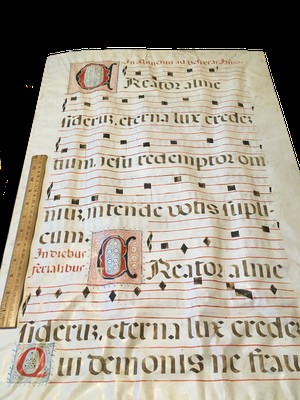 In Aduentu ad vesperas
CReator alme
siderum, eterna lux creden
tium, Jesu redemptor om
nium, intende votis supli
cum.
In diebus
ferialibus
CReator alme
siderum, eterna lux creden
Qui demonis ne frau